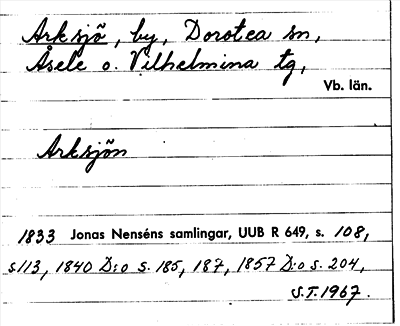 Arksjö, by, Dorotea sn,
Åsele o. Vilhelmina tg,
Vb. län.
Arksjön
1833 Jonas Nenséns samlingar, UUB R 649, s. 108,
s113, 1840 D:o s. 185, 187, 1857 D:o s. 204,
S.T. 1967.